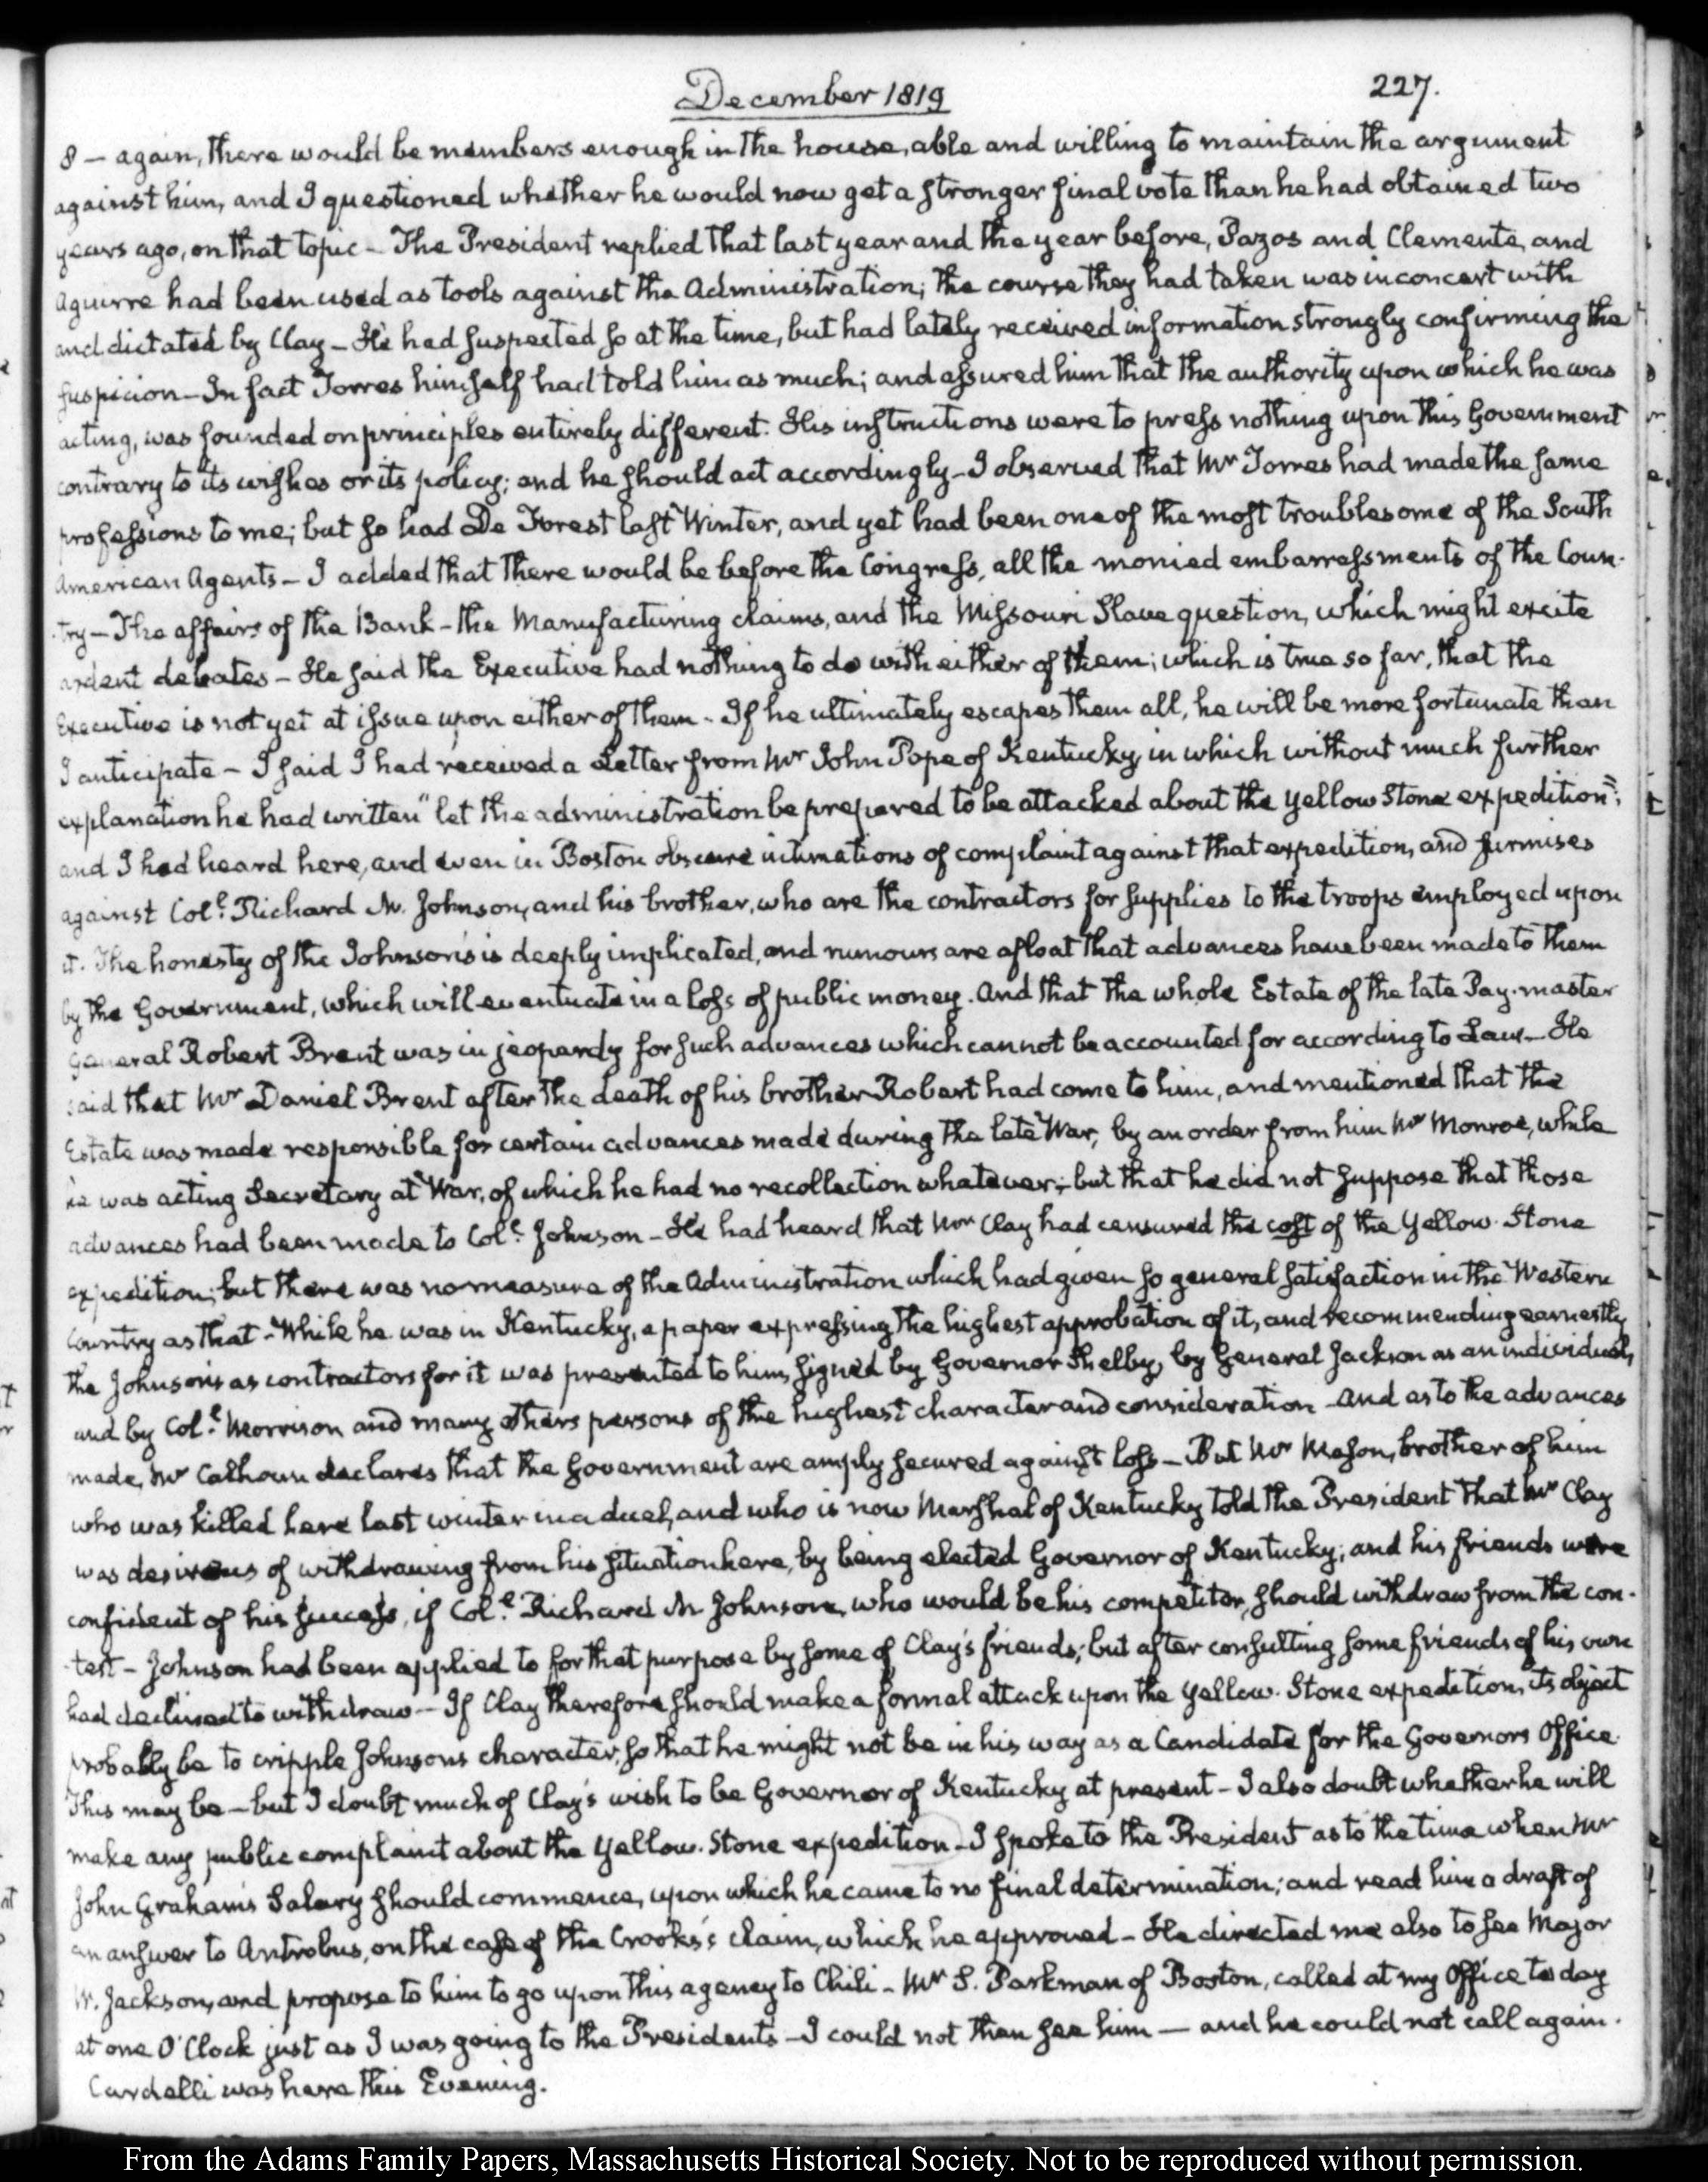 December 1819
227.
8 — again, there would be members enough in the house, able and willing to maintain the argument
against him, and I questioned whether he would now get a stronger final vote than he had obtained two
years ago, on that topic – The President replied that last year and the year before, Pazos and Clemente, and
Aguirre had been used as tools against the Administration; the course they had taken was in concert with
and dictated by Clay – He had suspected so at the time, but had lately received information strongly confirming the
suspicion – In fact Torres himself had told him as much; and assured him that the authority upon which he was
acting, was founded on principles entirely different. His instructions were to press nothing upon this Government
contrary to its wishes or its policy; and he should act accordingly – I observed that Mr Torres had made the same
professions to me; but so had De Forest last Winter, and yet had been one of the most troublesome of the South
American Agents – I added that there would be before the Congress, all the monied embarrassments of the Coun-
-try – The affairs of the Bank – the Manufacturing claims, and the Missouri Slave question, which might excite
ardent debates – He said the Executive had nothing to do with either of them; which is true so far, that the
Executive is not yet at issue upon either of them – If he ultimately escapes them all, he will be more fortunate than
I anticipate – I said I had received a Letter from Mr John Pope of Kentucky, in which without much further
explanation he had written "let the administration be prepared to be attacked about the Yellow Stone expedition";
and I had heard here, and even in Boston obscure intimations of complaint against that expedition, and surmises
against Coll. Richard M. Johnson, and his brother, who are the contractors for supplies to the troops employed upon
it. The honesty of the Johnson's is deeply implicated, and rumours are afloat that advances have been made to them
by the Government, which will eventuate in a loss of public money. And that the whole Estate of the late Pay-master
General Robert Brent was in jeopardy for such advances which cannot be accounted for according to Law – He
said that Mr Daniel Brent after the death of his brother Robert had come to him, and mentioned that the
Estate was made responsible for certain advances made during the late War, by an order from him Mr Monroe, while
he was acting Secretary at War, of which he had no recollection whatever; but that he did not suppose that those
advances had been made to Coll. Johnson – He had heard that Mr Clay had censured the cost of the Yellow-Stone
expedition; but there was no measure of the Administration which had given so general satisfaction in the Western
Country as that – While he was in Kentucky, a paper expressing the highest approbation of it, and recommending earnestly
the Johnson's as contractors for it was presented to him, signed by Governor Shelby, by General Jackson as an individual,
and by Coll. Morrison and many others persons of the highest character and consideration – And as to the advances
made, Mr Calhoun declares that the Government are amply secured against loss – But Mr Mason, brother of him
who was killed here last winter in a duel, and who is now Marshal of Kentucky told the President that Mr Clay
was desirous of withdrawing from his situation here, by being elected Governor of Kentucky; and his friends were
confident of his success, if Coll. Richard M Johnson, who would be his competitor, should withdraw from the con-
-test – Johnson had been applied to for that purpose by some of Clay's friends; but after consulting some friends of his own
had declined to withdraw – If Clay therefore should make a formal attack upon the Yellow-Stone expedition, its object
probably be to cripple Johnsons character, so that he might not be in his way as a Candidate for the Governors Office.
This may be – but I doubt much of Clay's wish to be Governor of Kentucky at present – I also doubt whether he will
make any public complaint about the Yellow-Stone expedition – I spoke to the President as to the time when Mr
John Graham's Salary should commence, upon which he came to no final determination; and read him a draft of
an answer to Antrobus, on the case of the Crooks's claim, which he approved – He directed me also to see Major
W. Jackson, and propose to him to go upon this agency to Chili – Mr S. Parkman of Boston, called at my Office to day
at one O'Clock just as I was going to the Presidents – I could not then see him — and he could not call again.
Cardelli was here this Evening.
From the Adams Family Papers, Massachusetts Historical Society. Not to be reproduced without permission.